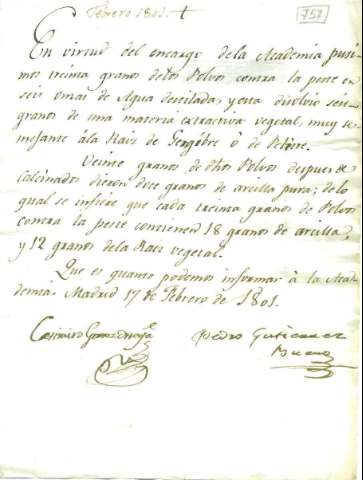 Febrero 1801. †
757
En virtud del encargo dela Academia pusi-
mos treinta granos delos Polvos contra la peste en
seis onzas de Agua destilada, y esta disolvio seis
granos de una materia extractiva vegetal, muy se-
mejante ála Raiz de Gengibre ò de Pelitre.
Veinte granos de dhos Polvos despues de
calcinados dieron doce granos de arcilla pura; delo
qual se infiere que cada treinta granos de Polvos
contra la peste contienen 18 granos de arcilla,
y 12 granos dela Raiz vegetal.
Que es quanto podemos informar à la Aca-
demia. Madrid 17 de Febrero de 1801.
Casimiro Gomez Ortega
Pedro Gutierrez
Bueno